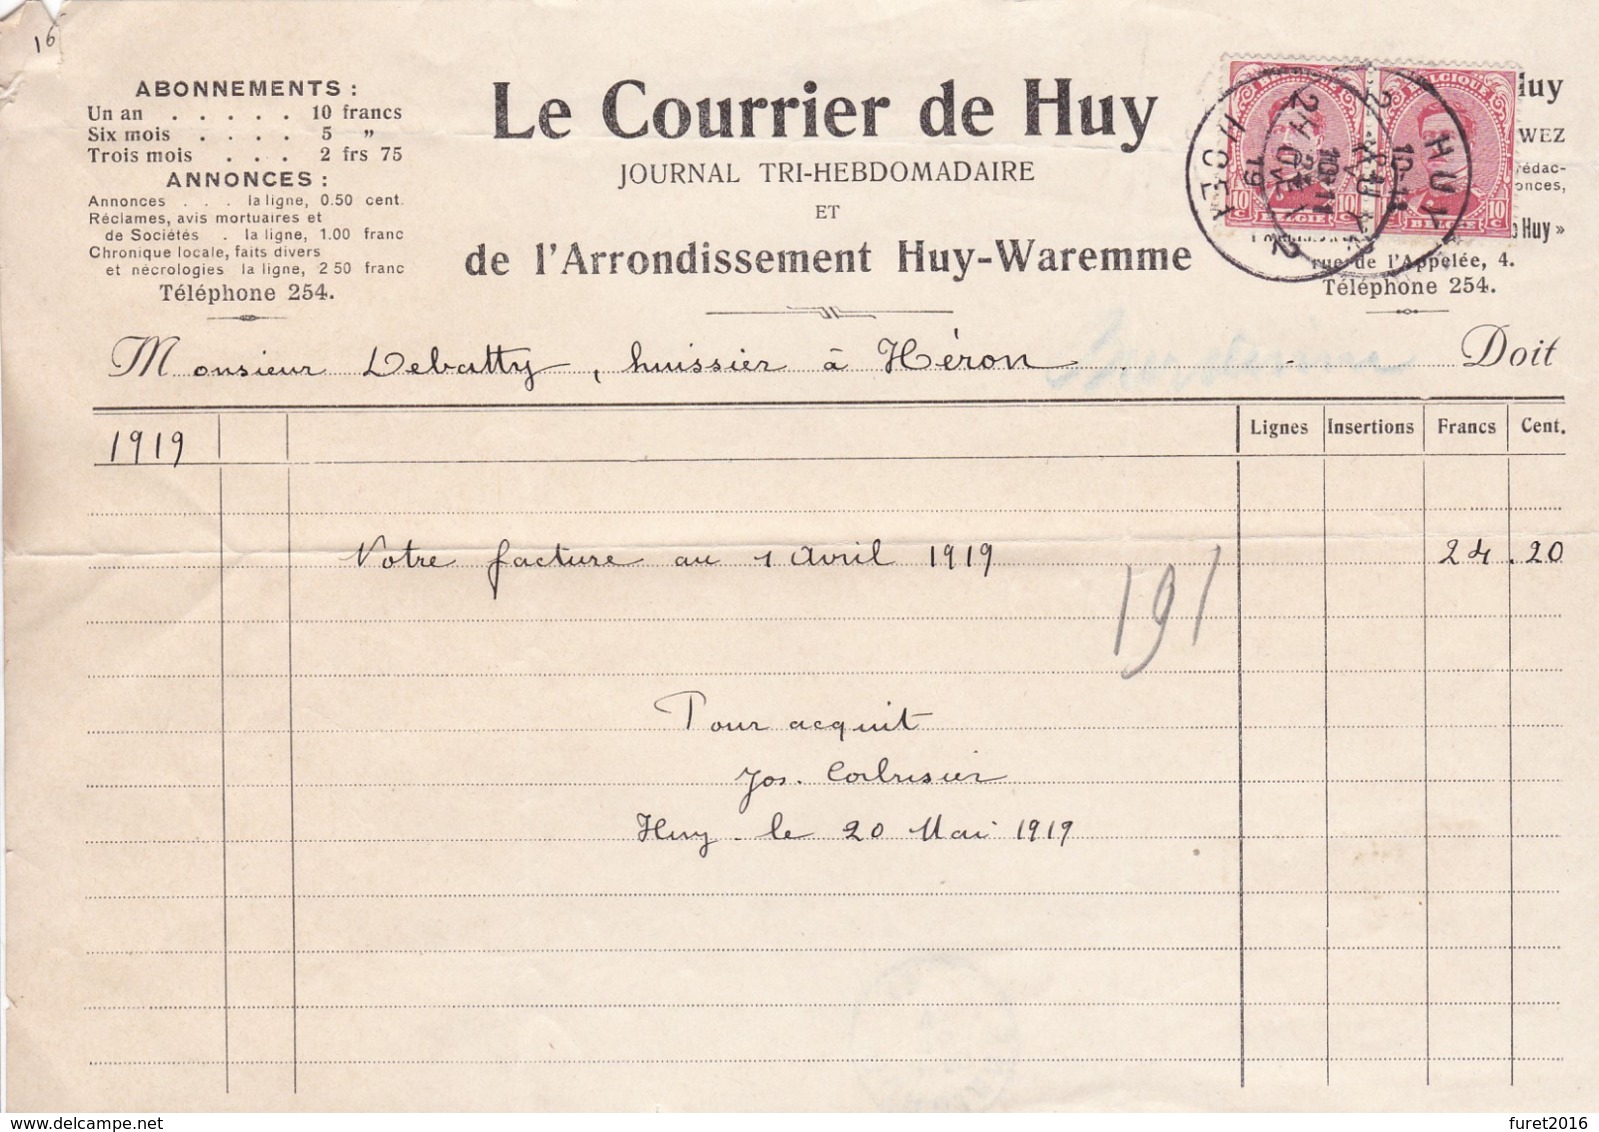 16
ABONNEMENTS :
Un an . . . . . 10 francs
Six mois . . . . 5 „
Trois mois . . . 2 frs 75
ANNONCES :
Annonces . . . la ligne, 0.50 cent.
Réclames, avis mortuaires et
de Sociétés . la ligne, 1.00 franc
Chronique locale, faits divers
et nécrologies la ligne, 2 50 franc
Téléphone 254.
Le Courrier de Huy
JOURNAL TRI-HEBDOMADAIRE
ET
de l'Arrondissement Huy-Waremme
BELGIQUE
10 c BELGIË 10 c
HUY
HOEI
Huy »
rue de l'Appelée, 4.
Téléphone 254.
Monsieur Debatty, huissier à Héron Doit
1919
Lignes Insertions Francs Cent.
Votre facture au 1 Avril 1919 24.20
191
Pour acquit
Jos.
Huy le 20 Mai 1919
furet2016